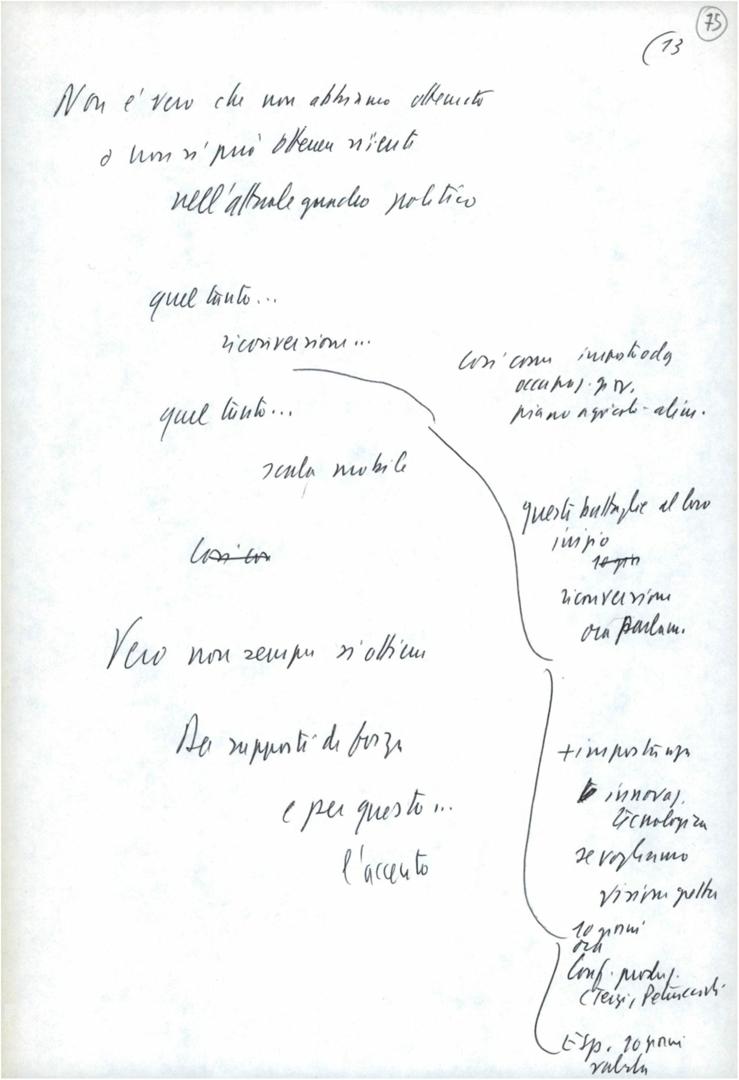 75
(13
Non è vero che non abbiamo ottenuto
o non si può ottenere niente
nell'attuale quadro politico
quel tanto...
riconversione...
quel tanto...
scala mobile
Così con
Vero non sempre si ottiene
Per rapporti di forza
e per questo...
l'accento
Così come
occupaz. giov.
piano agricolo-alim.
queste battaglie al loro
inizio
riconversione
ora Parlam.
+ importanza
innovaz.
tecnologica
se vogliamo
visione
10 giorni
ora
Conf. produz.
Esp. 10 giorni